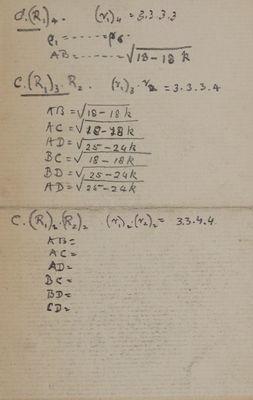 d. (R₁)₄. (r₁)₄ = 3.3.3.3
ρ₁ = ------ = ρ₆.
AB = ------ √18-18k
C. (R₁)₃. R₂. (r₁)₃. r₂ = 3.3.3.4
AB = √18-18k
AC = √18-18k
AD = √25-24k
BC = √18-18k
BD = √25-24k
AD = √25-24k
C. (R₁)₂.(R₂)₂ (r₁)₂.(r₂)₂ = 3.3.4.4.
AB =
AC =
AD =
BC =
BD =
CD =